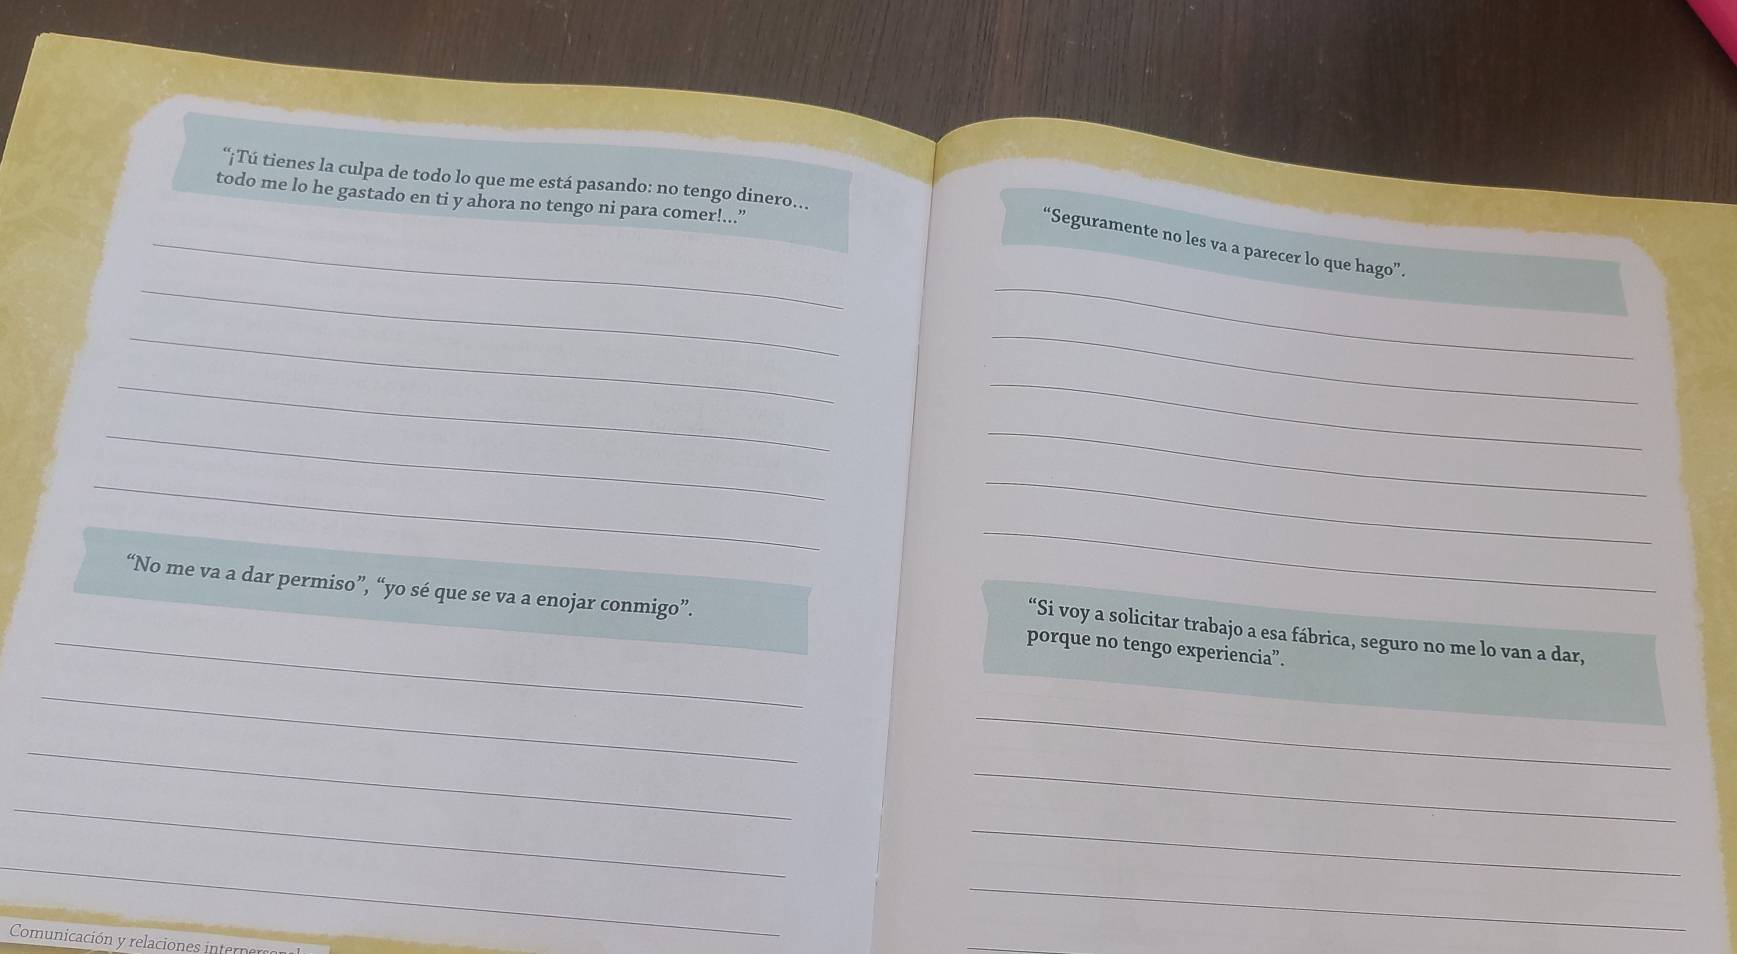 “¡Tú tienes la culpa de todo lo que me está pasando: no tengo dinero...
todo me lo he gastado en ti y ahora no tengo ni para comer!...”
“No me va a dar permiso”, “yo sé que se va a enojar conmigo”.
Comunicación y relaciones
“Seguramente no les va a parecer lo que hago”.
“Si voy a solicitar trabajo a esa fábrica, seguro no me lo van a dar,
porque no tengo experiencia”.